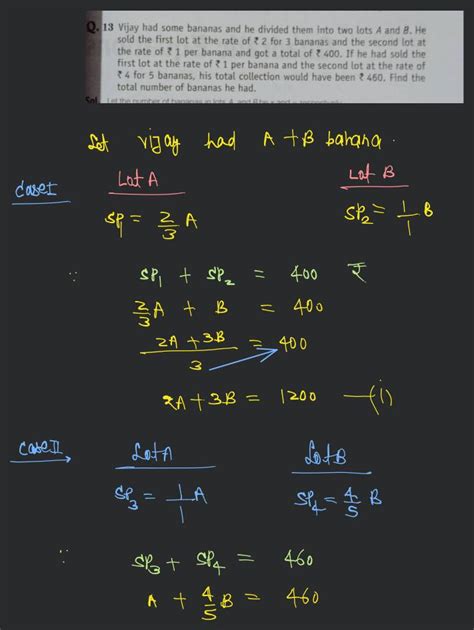 Q. 13 Vijay had some bananas and he divided them into two lots A and B. He
sold the first lot at the rate of ₹ 2 for 3 bananas and the second lot at
the rate of ₹ 1 per banana and got a total of ₹ 400. If he had sold the
first lot at the rate of ₹ 1 per banana and the second lot at the rate of
₹ 4 for 5 bananas, his total collection would have been ₹ 460. Find the
total number of bananas he had.
Sol. Let the number of bananas in lots A and B be x and y
Let vijay had A + B banana.
Case I Lot A Lot B
SP₁ = 2/3 A SP₂ = 1/1 B
∵ SP₁ + SP₂ = 400 ₹
2/3 A + B = 400
(2A + 3B)/3 = 400
2A + 3B = 1200 —(i)
Case II Lot A Lot B
SP₃ = 1/1 A SP₄ = 4/5 B
∵ SP₃ + SP₄ = 460
A + 4/5 B = 460